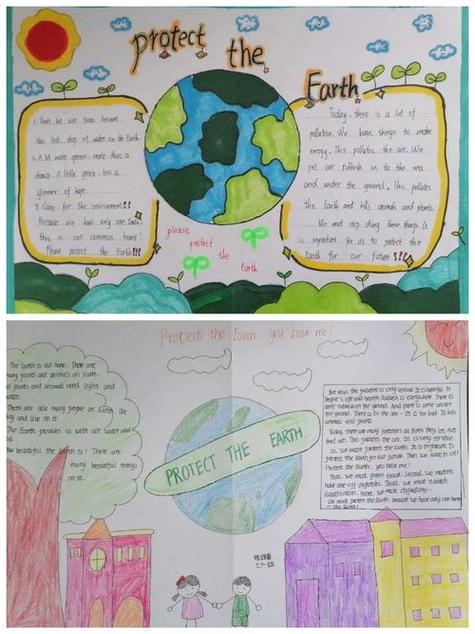 protect the
Earth
1. Don't let our tears become
the last drop of water on the Earth
2. A lot more green, more than a
chance. A little green, less a
glimmer of hope.
3. Care for the environment!!
Because we have only one Earth
this is our common home!
Please protect the Earth!!!
Today, there is a lot of
pollution. We burn things to make
energy. This pollutes the air. We
put our rubbish in to the sea
and under the ground. This pollutes
the Earth and kills animals and plants.
We must stop doing these things. It
is important for us to protect the
Earth for our future!!!
please
protect
the
Earth
Protect the Earth. You hear me!
The Earth is our home. There are
many plants and animals on Earth.
plants and animals need light and
water.
There are also many people on Earth. We
and live on it.
The Earth provides us with air, water and
beautiful the Earth is! There are
many beautiful things
on it.
PROTECT THE EARTH
But now the pollution is very serious. It is harmful to
people's life and health. Rubbish is everywhere. There is
some rubbish on the ground. And there is some under
the ground. There is in the sea. It is too bad. It kills
animals and plants.
Today, there are many factories on Earth. They let out
bad air. This pollutes the air. It is very terrible.
So, we must protect the Earth. It is important to
protect the Earth for our future. Then we need to act!
Protect the Earth, you hear me!
First, we must green travel. Second, we must
have one-off chopsticks. Third, we must rubbish
classification. Now, we must
We must protect the Earth because we have only one home
the Earth!